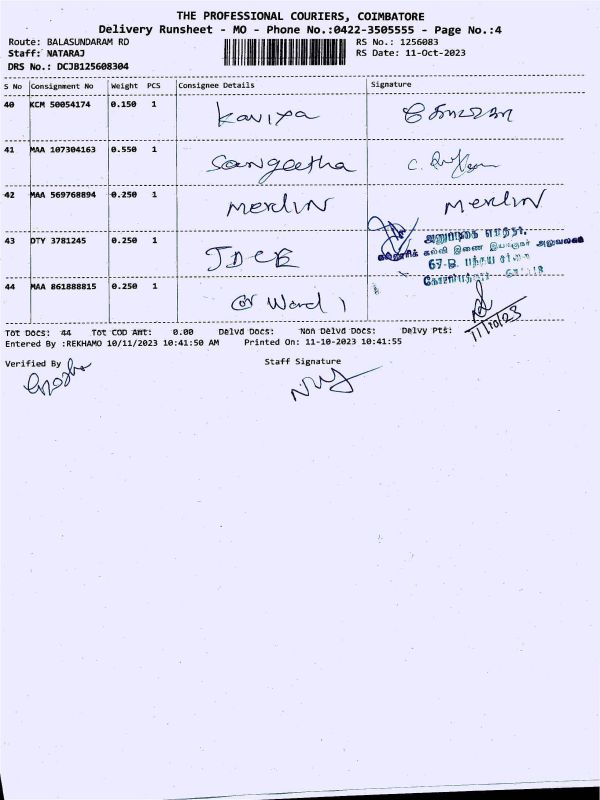 THE PROFESSIONAL COURIERS, COIMBATORE
Delivery Runsheet - MO - Phone No.:0422-3505555 - Page No.:4
Route: BALASUNDARAM RD RS No.: 1256083
Staff: NATARAJ RS Date: 11-Oct-2023
DRS No.: DCJB125608304
S No Consignment No Weight PCS Consignee Details Signature
40 KCM 50054174 0.150 1 Kaviya
41 MAA 107304163 0.550 1 Sangeetha C.
42 MAA 569768894 0.250 1 MERLIN MERLIN
43 DTY 3781245 0.250 1 JDCE
கல்லூரிக் கல்வி இணை இயக்குநர் அலுவலகம்
67-B,
44 MAA 861888815 0.250 1 Ward 1
11/10/23
Tot Docs: 44 Tot COD Amt: 0.00 Delvd Docs: Non Delvd Docs: Delvy Pts:
Entered By :REKHAMO 10/11/2023 10:41:50 AM Printed On: 11-10-2023 10:41:55
Verified By Staff Signature